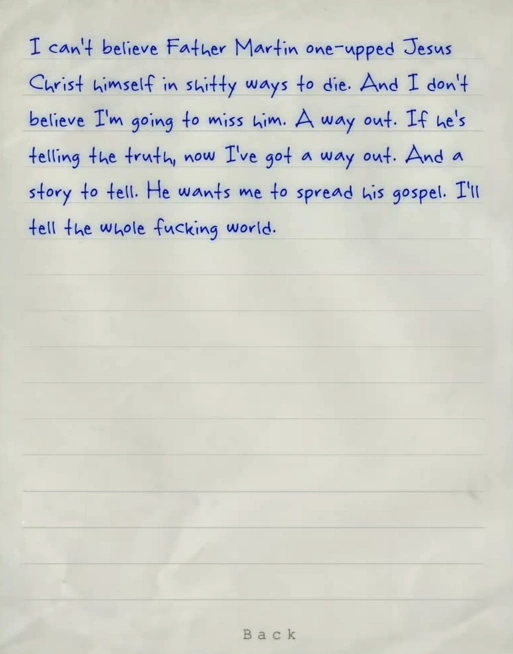 I can't believe Father Martin one-upped Jesus
Christ himself in shitty ways to die. And I don't
believe I'm going to miss him. A way out. If he's
telling the truth, now I've got a way out. And a
story to tell. He wants me to spread his gospel. I'll
tell the whole fucking world.
Back